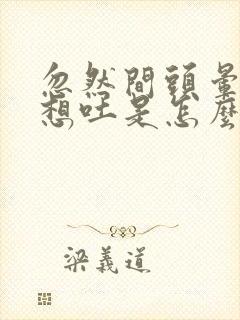 忽然間頭暈
想吐是怎麼
梁義道